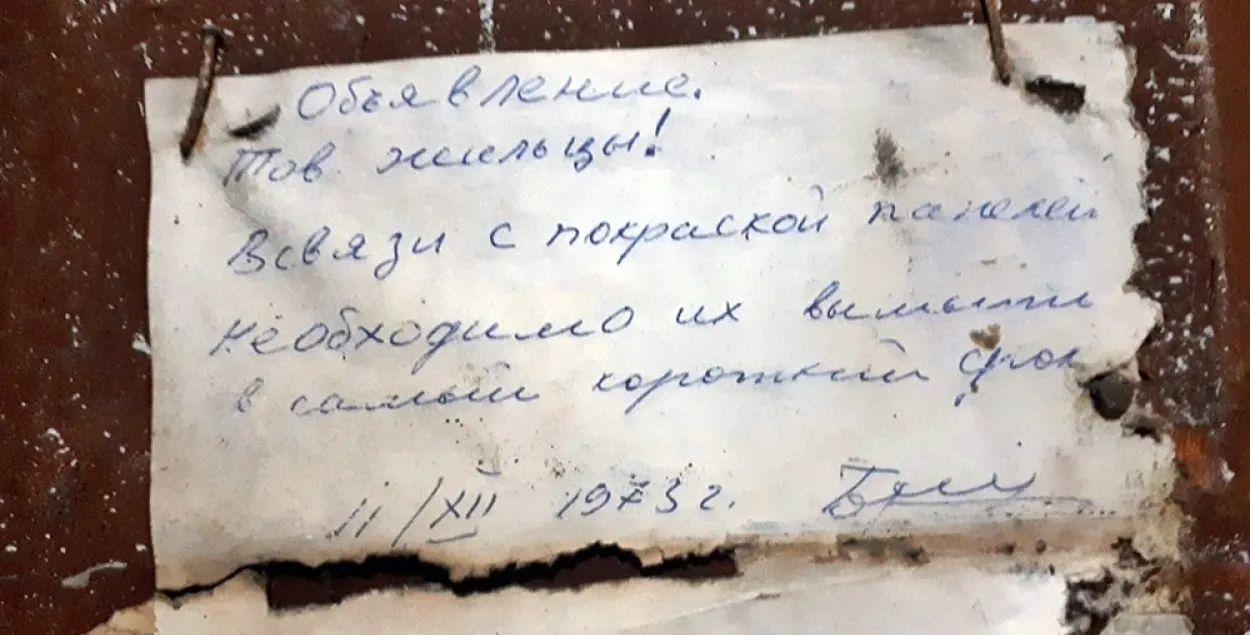 Объявление.
Тов. жильцы!
Всвязи с покраской панелей
необходимо их вымыть
в самый короткий срок
11/XII 1973 г.